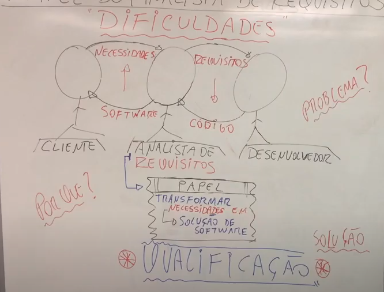 PAPEL DO ANALISTA DE REQUISITOS
"DIFICULDADES"
NECESSIDADES
REQUISITOS
PROBLEMA?
SOFTWARE
CÓDIGO
CLIENTE
ANALISTA DE
REQUISITOS
DESENVOLVEDOR
POR QUE?
PAPEL
TRANSFORMAR
NECESSIDADES EM
SOLUÇÃO DE
SOFTWARE
SOLUÇÃO
QUALIFICAÇÃO